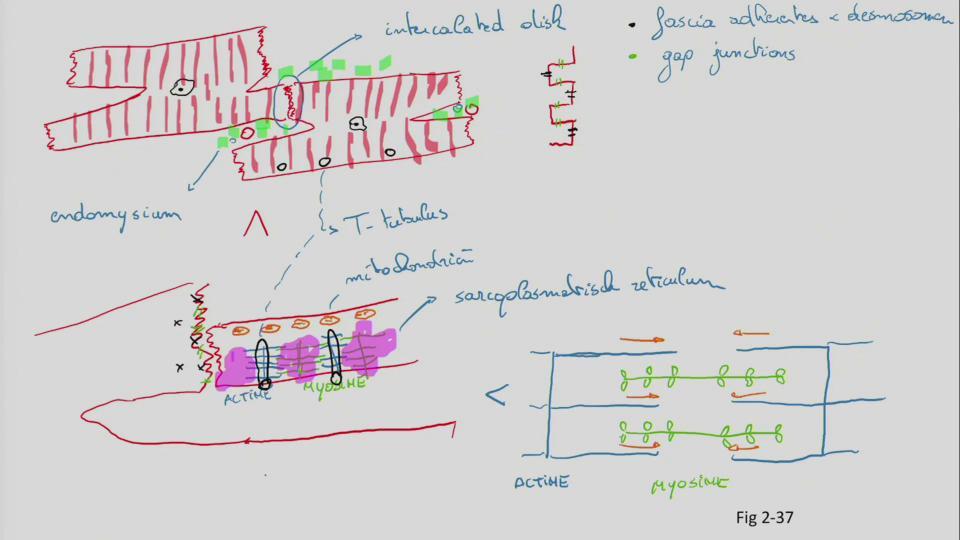 intercalated disk
• fascia adherentes < desmosomen
• gap junctions
endomysium
T-tubulus
mitochondriën
sarcoplasmatisch reticulum
ACTINE
MYOSINE
ACTINE
MYOSINE
Fig 2-37